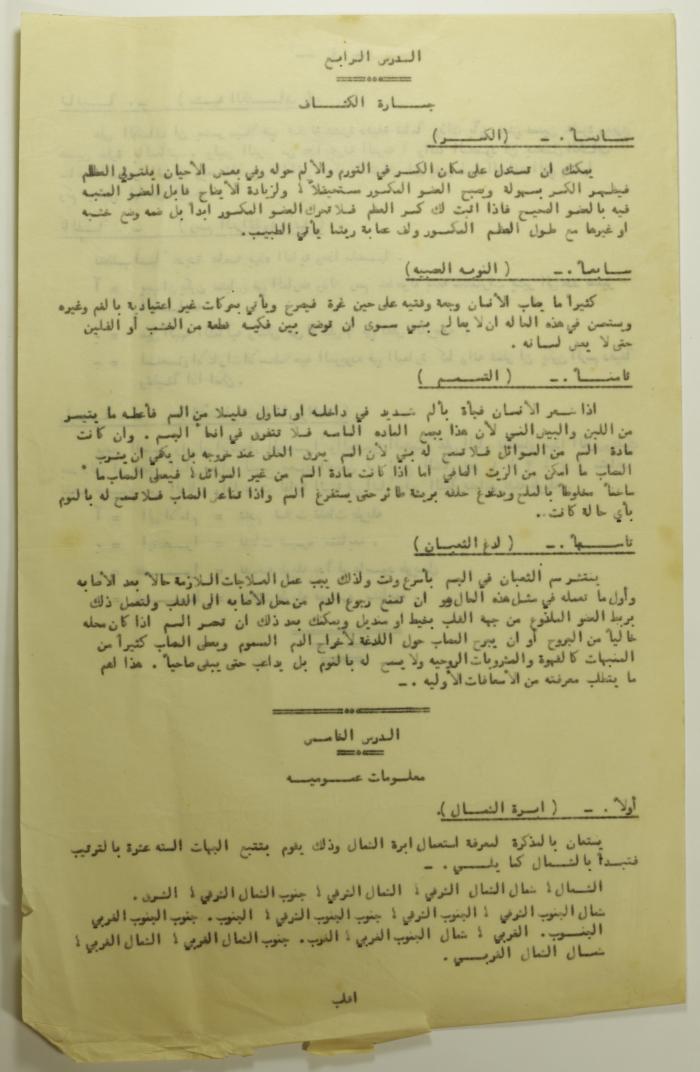 الدرس الرابع
جدارة الكشاف
سادساً . ـ ( الكسر )
يمكنك ان تستدل على مكان الكسر في التورم والألم حوله وفي بعض الأحيان يلتوي العظم
فيظهر الكسر بسهولة ويصبح العضو المكسور مستحيفلاً ؛ ولزيادة الأيضاح قابل العضو المشتبه
فيه بالعضو الصحيح فاذا اثبت لك كسر العظم فلا تحرك العضو المكسور ابداً بل ضمه وضع خشبه
او غيرها مع طول العظم المكسور ولف عصابة ريثما يأتي الطبيب .
سابعاً . ـ ( النوبه العصبيه )
كثيراً ما يصاب الأنسان وجعة وقتيه على حين غرة فيصرخ ويأتي بحركات غير اعتيادية بالفم وغيره
ويستحسن في هذه الحاله ان لا يعالج بشي سوى ان توضع بين فكيه قطعة من الخشب أو الفلين
حتى لا يعض لسانه .
ثامناً . ـ ( التسمم )
اذا شعر الأنسان فجأة بألم شديد في داخله او تناول قليلا من السم فأعطه ما يتيسر
من اللبن والبيض النيي لأن هذا يجمع الماده السامه فلا تتفرق في انحاء الجسم . وان كانت
مادة السم من السوائل فلا تسمح له بقي لأن السم يحرق الحلق عند خروجه بل يكفي ان يشرب
المصاب ما امكن من الزيت الصافي اما اذا كانت مادة السم من غير السوائل ؛ فيعطى المصاب ماء
ساخناً مخلوطاً بالملح ويدغدغ حلقه بريشة طائر حتى يستفرغ السم واذا تناعس المصاب فلا تسمح له بالنوم
بأي حالة كانت .
تاسعاً . ـ ( لدغ الثعبان )
ينتشر سم الثعبان في الجسم بأسرع وقت ولذلك يجب عمل العلاجات اللازمة حالاً بعد الأصابه
وأول ما تعمله في مثل هذه الحال هو ان تمنع رجوع الدم من محل الأصابه الى القلب ولتصل ذلك
يربط العضو الملدوغ من جهه القلب بخيط او منديل ويمكنك بعد ذلك ان تحصر السم اذا كان محله
خالياً من الجروح أو ان يجرح المصاب حول اللدغة لأخراج الدم المسموم ويعطى المصاب كثيراً من
المنبهات كالقهوة والمشروبات الروحيه ولا يسمح له بالنوم بل يداعب حتى يبقى صاحياً . هذا اهم
ما يتطلب معرفته من الأسعافات الأوليه . ـ
الدرس الخامس
معلومات عموميه
أولاً . ـ ( ابرة الشمال ) .
يستعان بالمذكرة لمعرفة استعمال ابرة الشمال وذلك يقوم بتتبع الجهات السته عشرة بالترتيب
فتبدأ بالشمال كما يلي . ـ
الشمال ؛ شمال الشمال الشرقي ؛ الشمال الشرقي ؛ جنوب الشمال الشرقي ؛ الشرق .
شمال الجنوب الشرقي ؛ الجنوب الشرقي ؛ جنوب الجنوب الشرقي ؛ الجنوب . جنوب الجنوب الغربي
الجنوب . الغربي ؛ شمال الجنوب الغربي ؛ الغرب . جنوب الشمال الغربي ؛ الشمال الغربي ؛
شمال الشمال الغربي .
اقلب